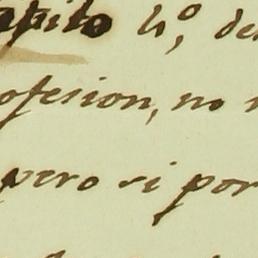 apito 4º, de
ofesion, no
pero si por